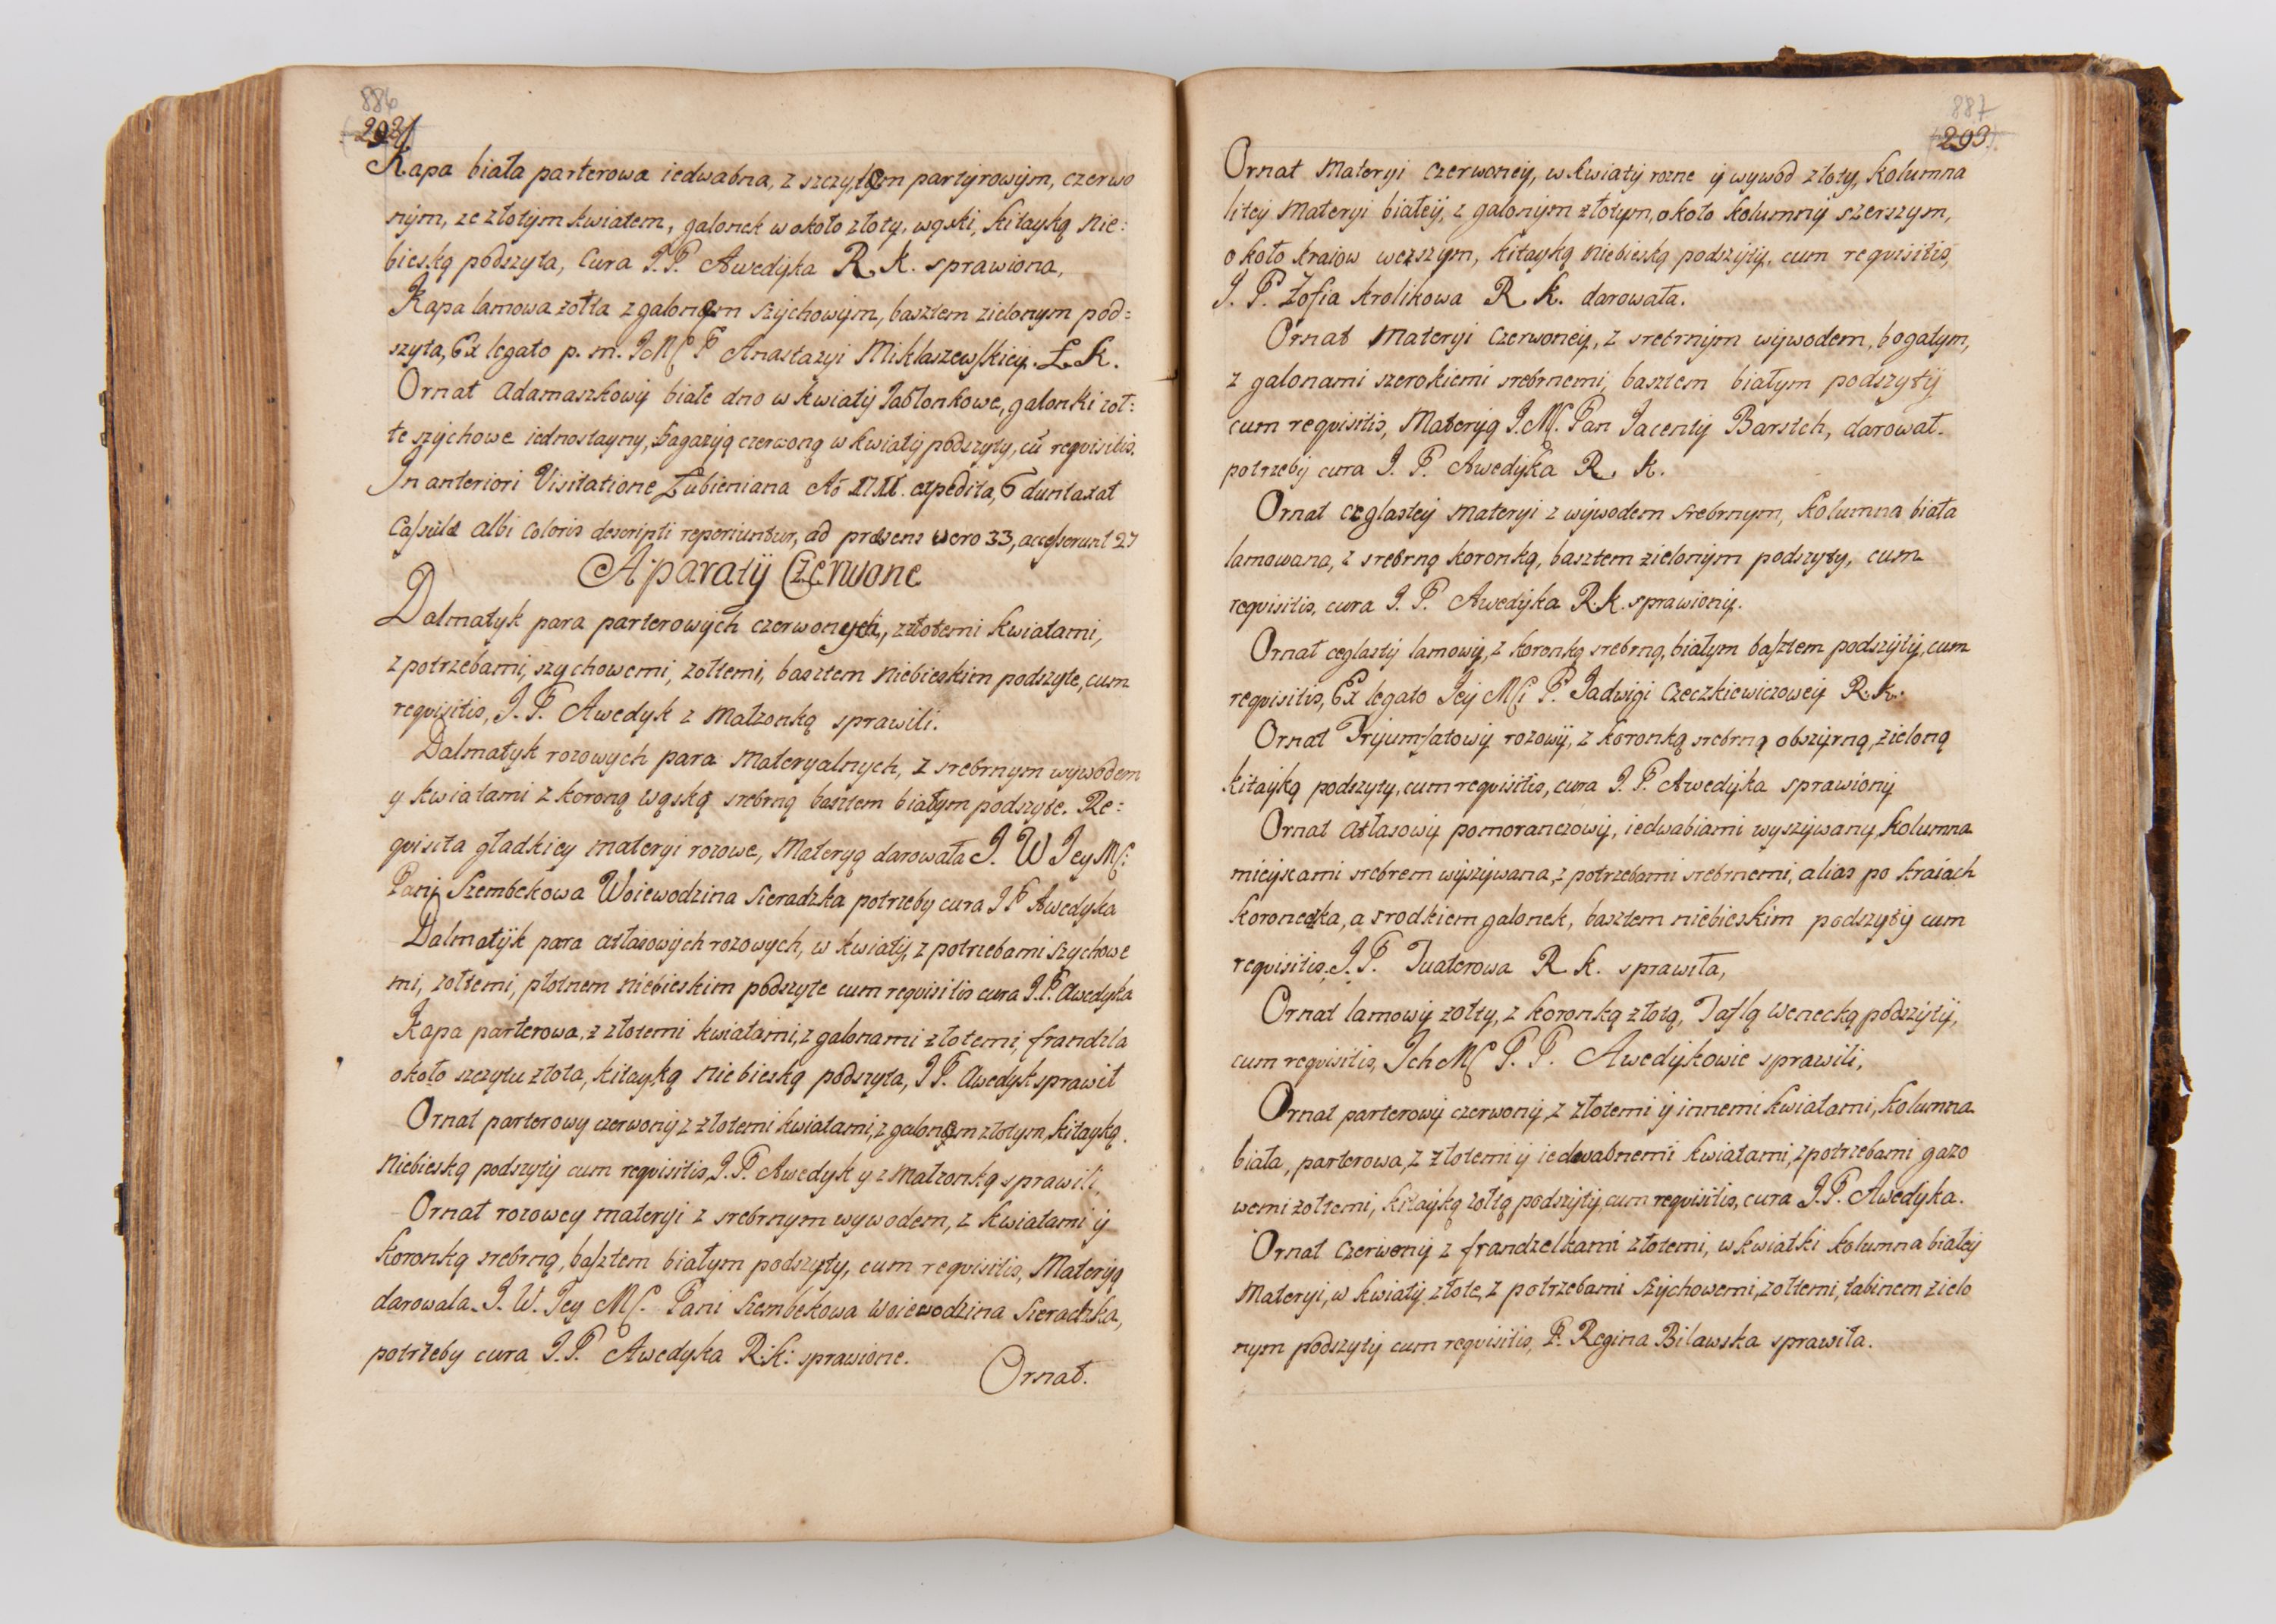 886
292
Kapa biała parterowa iedwabna, z szczytem partyrowym, czerwo
nym, ze złotym kwiatem, galonek w około złoty, wąski, kitayką nie:
bieską podszyta, Cura J.P. Awedyka R. K. sprawiona,
Kapa lamowa zołta z galonem szychowym, basztem zielonym pod=
szyta, Ex legato p. m. JMC P Anastazyi Miklaszewskiey. R. K.
Ornat adamaszkowy białe dno w kwiaty Jabłonkowe, galonki zoł:
te szychowe iednostayny, bagazyą czerwoną w kwiaty podszyty, cũ requisitis.
In anteriori Visitatione Łubieniana Aõ 1711. expedita, 6 duntaxat
Casulæ albi Coloris descripti reperiuntur, ad præsens vero 33, accesserunt 27
Aparaty Czerwone
Dalmatyk para parterowych czerwonych, zzłotemi kwiatami,
z potrzebami, szychowemi, zołtemi, basztem niebieskim podszyte, cum
requisitis, J. P. Awedyk z Małzonką sprawili.
Dalmatyk rozowych para Materyalnych, z srebrnym wywodem
y kwiatami z koroną wąską srebrną basztem białym podszyte. Re:
quisita gładkiey materyi rozowe, Materyą darowała J. W Jey Mſ:
Pani Szembekowa Woiewodzina Sieradzka potrzeby cura J P Awedyka
Dalmatyk para atłasowych rozowych, w kwiaty, z potrzebami szychowe
mi, zołtemi, płotnem niebieskim podszyte cum requisitis cura J. P. Awedyka
Kapa parterowa, z złotemi kwiatami, z galonami złotemi, frandzla
około szczytu złota, kitayką niebieską podszyta, J P. Awedyk sprawił
Ornat parterowy czerwony z złotemi kwiatami, z galonem złotym, kitayką
niebieską podszyty cum requisitis, J. P. Awedyk y z Małzonką sprawili,
Ornat rozowey materyi z srebrnym wywodem, z kwiatami y
koronką srebrną, basztem białym podszyty, cum requisitis, Materyą
darowala J. W. Jey Mſ. Pani Szembekowa Woiewodzina Sieradzka,
potrzeby cura J. P. Awedyka R: K: sprawione.
Ornat.
887
293
Ornat Materyi czerwoney, w kwiaty rozne y wywod złoty, kolumna
litey Materyi białey, z galonym złotym, około kolumny szerszym,
około kraiow wezszym, kitayką niebieską podszyty, cum requisitis,
J. P. Zofia krolikowa R. K. darowała.
Ornat Materyi czerwoney, z srebrnym wywodem, bogatym,
z galonami szerokiemi srebrnemi, basztem białym podszyty
cum requisitis, Materyą J. M. Pan Jacenty Barstch, darował.
potrzeby cura J. P. Awedyka R. K.
Ornat ceglastey Materyi z wywodem srebrnym, Kolumna biała
lamowana, z srebrną koronką, basztem zielonym podszyty, cum
requisitis, cura J. P. Awedyka R. K. sprawiony.
Ornat ceglasty lamowy, z koronką srebrną, białym basztem podszyty, cum
requisitis, Ex legato Jey Mſi P. Jadwigi Czeczkiewiczowey R. K.
Ornat Tryumfatowy rozowy, z koronką srebrną obszyrną, zieloną
kitayką podszyty, cum requisitis, cura J. P. Awedyka sprawiony
Ornat Atłasowy pomoranczowy, iedwabiami wyszywany, kolumna
mieyscami srebrem wyszywana, z potrzebami srebrnemi, alias po kraiach
koroneczka, a srodkiem galonek, basztem niebieskim podszyty cum
requisitis, J. P. Tuaterowa R. K. sprawiła,
Ornat lamowy zołty, z koronką złotą, Taflą Wenecką podszyty,
cum requisitis, Ich Mſ P. P. Awedykowie sprawili,
Ornat parterowy czerwony, z złotemi y innemi kwiatami, kolumna
biała, parterowa, z złotemi y iedwabnemi kwiatami, z potrzebami gazo
wemi zołtemi, kitayką zołtą podszyty, cum requisitis, cura J. P. Awedyka.
Ornat Czerwony z frandzelkami złotemi, w kwiatki kolumna białey
Materyi, w kwiaty złote, z potrzebami szychowemi, zołtemi, tabinem zielo
nym podszyty cum requisitis, P. Regina Bilawska sprawiła.